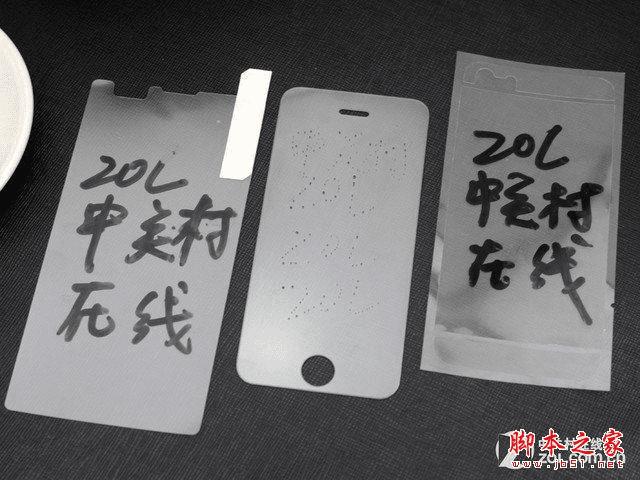 ZOL
中关村
在线
ZOL
ZOL
ZOL
ZOL
中关村
在线
中关村在线
zol.com.cn
脚本之家
www.jb51.net